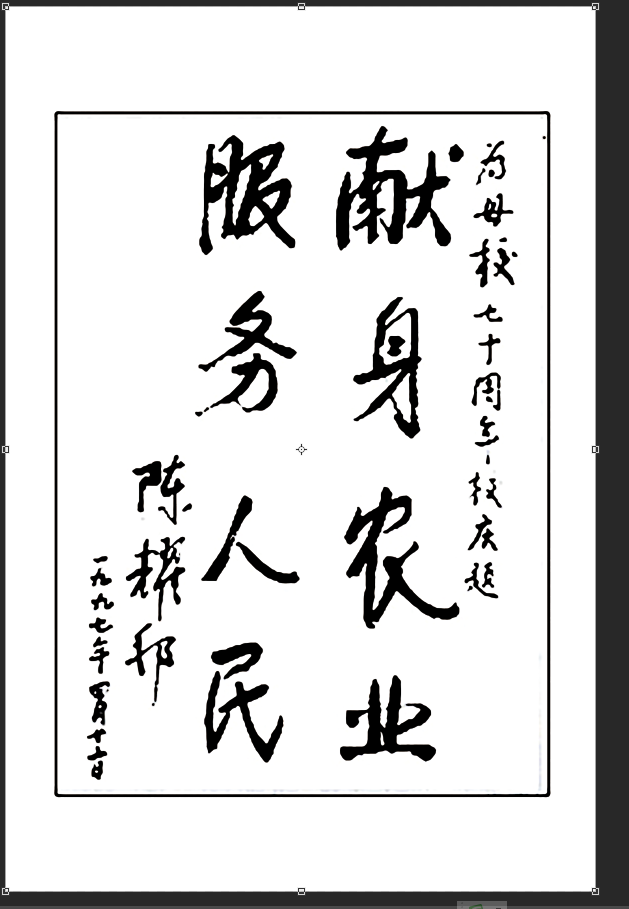 为母校七十周年校庆题
献身农业
服务人民
陈耀邦
一九九七年四月十六日